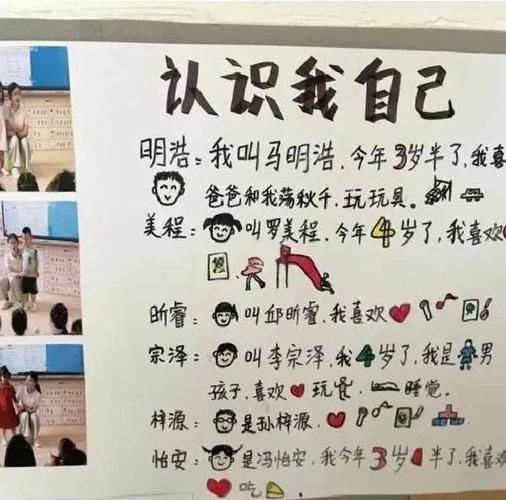 认识我自己
明浩：我叫马明浩，今年3岁半了，我喜
爸爸和我荡秋千，玩玩具。
美程：叫罗美程，今年4岁了，我喜欢
昕睿：叫邱昕睿，我喜欢
宗泽：叫李宗泽，我4岁了，我是男
孩子，喜欢玩，睡觉。
梓源：是孙梓源，
怡安：是冯怡安，我今年3岁半了，我喜
吃